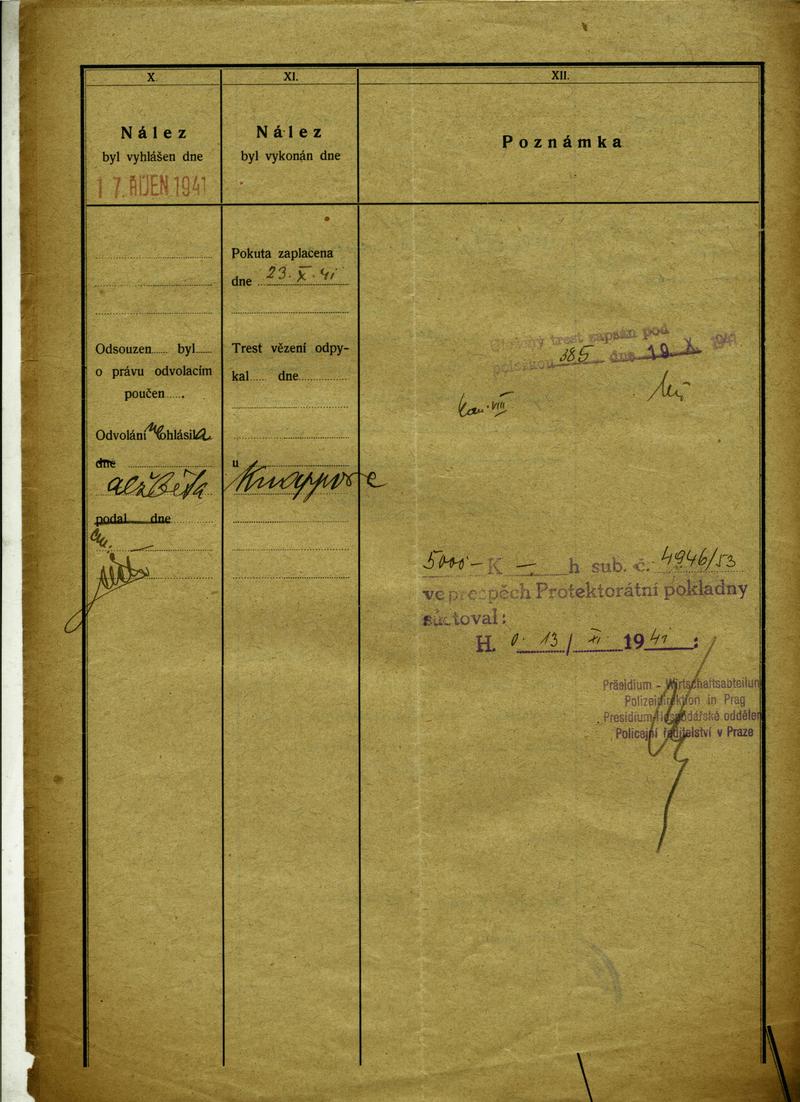 X.
Nález
byl vyhlášen dne
17. ŘÍJEN 1941
Odsouzen...... byl......
o právu odvolacím
poučen......
Odvolání neohlásila
dne
Alžběta
podal dne
XI.
Nález
byl vykonán dne
Pokuta zaplacena
dne 23. X. 41
Trest vězení odpy-
kal...... dne
u
Knappová
XII.
Poznámka
trest zapsán pod
položkou 385 dne 19 X. 1941
5000 - K — h sub. č. 4946/53
ve prospěch Protektorátní pokladny
súčtoval:
H. 0. 13 / XI 1941 :
Präsidium - Wirtschaftsabteilun
Polizeidirektion in Prag
Presidium-Hospodářské odděle
Policejní ředitelství v Praze